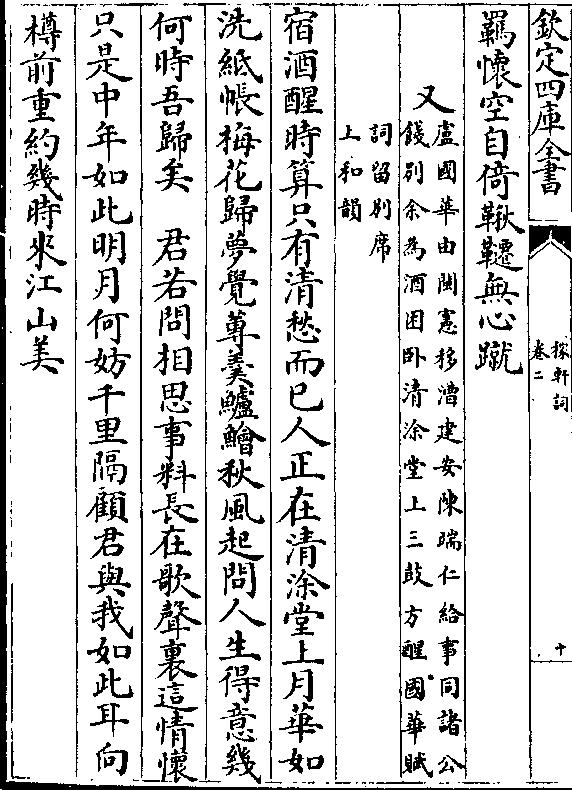 欽定四庫全書
稼軒詞
卷二
十
羈懷空自倚鞦韆無心蹴
又
盧國華由閩憲移漕建安陳瑞仁給事同諸公
餞别余為酒困卧清涂堂上三鼓方醒國華賦
詞留别席
上和韻
宿酒醒時算只有清愁而已人正在清涂堂上月華如
洗紙帳梅花歸夢覺蓴羹鱸鱠秋風起問人生得意幾
何時吾歸矣　君若問相思事料長在歌聲裏這情懷
只是中年如此明月何妨千里隔顧君與我如此耳向
樽前重約幾時來江山美